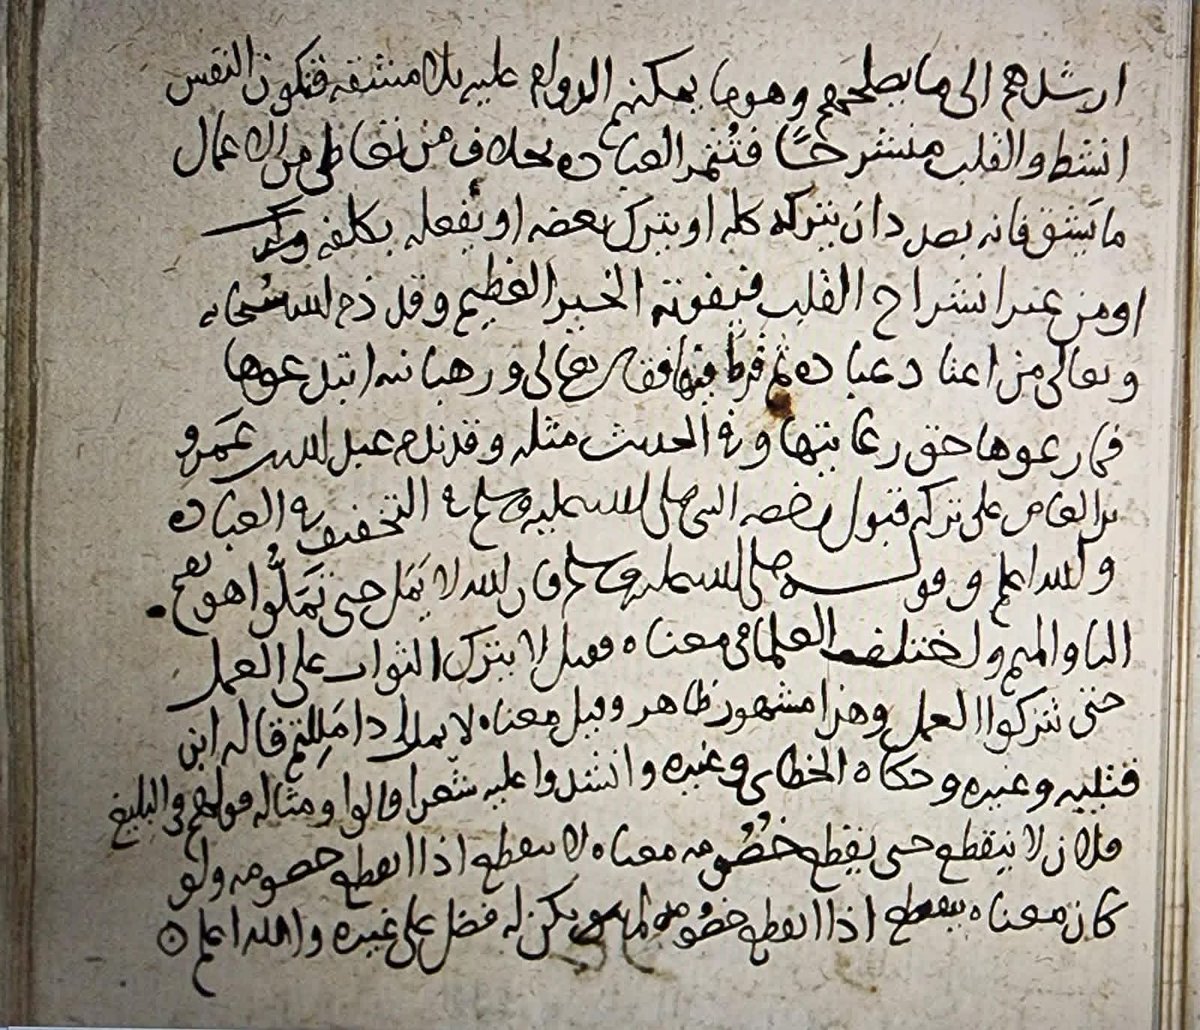 ارشدهم الى ما يصلحهم وهو ما يمكنهم الدوام عليه بلا مشقه فتكون النفس
انشط والقلب منشرحًا فتُتمر العباده بخلاف من تعاطى من الاعمال
ما يَشق فانه بصدد ان يتركه كله او يترك بعضه او يفعله بكلفه
او من غير انشراح القلب فيفوته الخير العظيم وقد ذم الله سبحانه
وتعالى من اعتاد عباده ثم فرط فيها فقال تعالى ورهبانيه ابتدعوها
فما رعوها حق رعايتها وفي الحديث مثله وقد ندم عبد الله بن عَمرو
بن العاص على تركه قبول رخصه النبي صلى الله عليه وسلم في التخفيف في العباده
والله اعلم وقوله صلى الله عليه وسلم فان الله لا يَمَل حتى تَمَلُّوا هو بفتح
اليا والميم واختلف العلما في معناه فقيل لا يترك الثواب على العمل
حتى تتركوا العمل وهذا مشهور ظاهر وقيل معناه لا يمل اذا مَلِلتم قاله ابن
قتيبه وغيره وحكاه الخطابي وغيره وانشدوا عليه شعرا قالوا ومثاله قولهم في البليغ
فلان لا ينقطع حتى يقطع خُصُومه معناه لا ينقطع اذا انقطع خصومه ولو
كان معناه ينقطع اذا انقطع خصُومه لم يكن له فضل على غيره والله اعلم